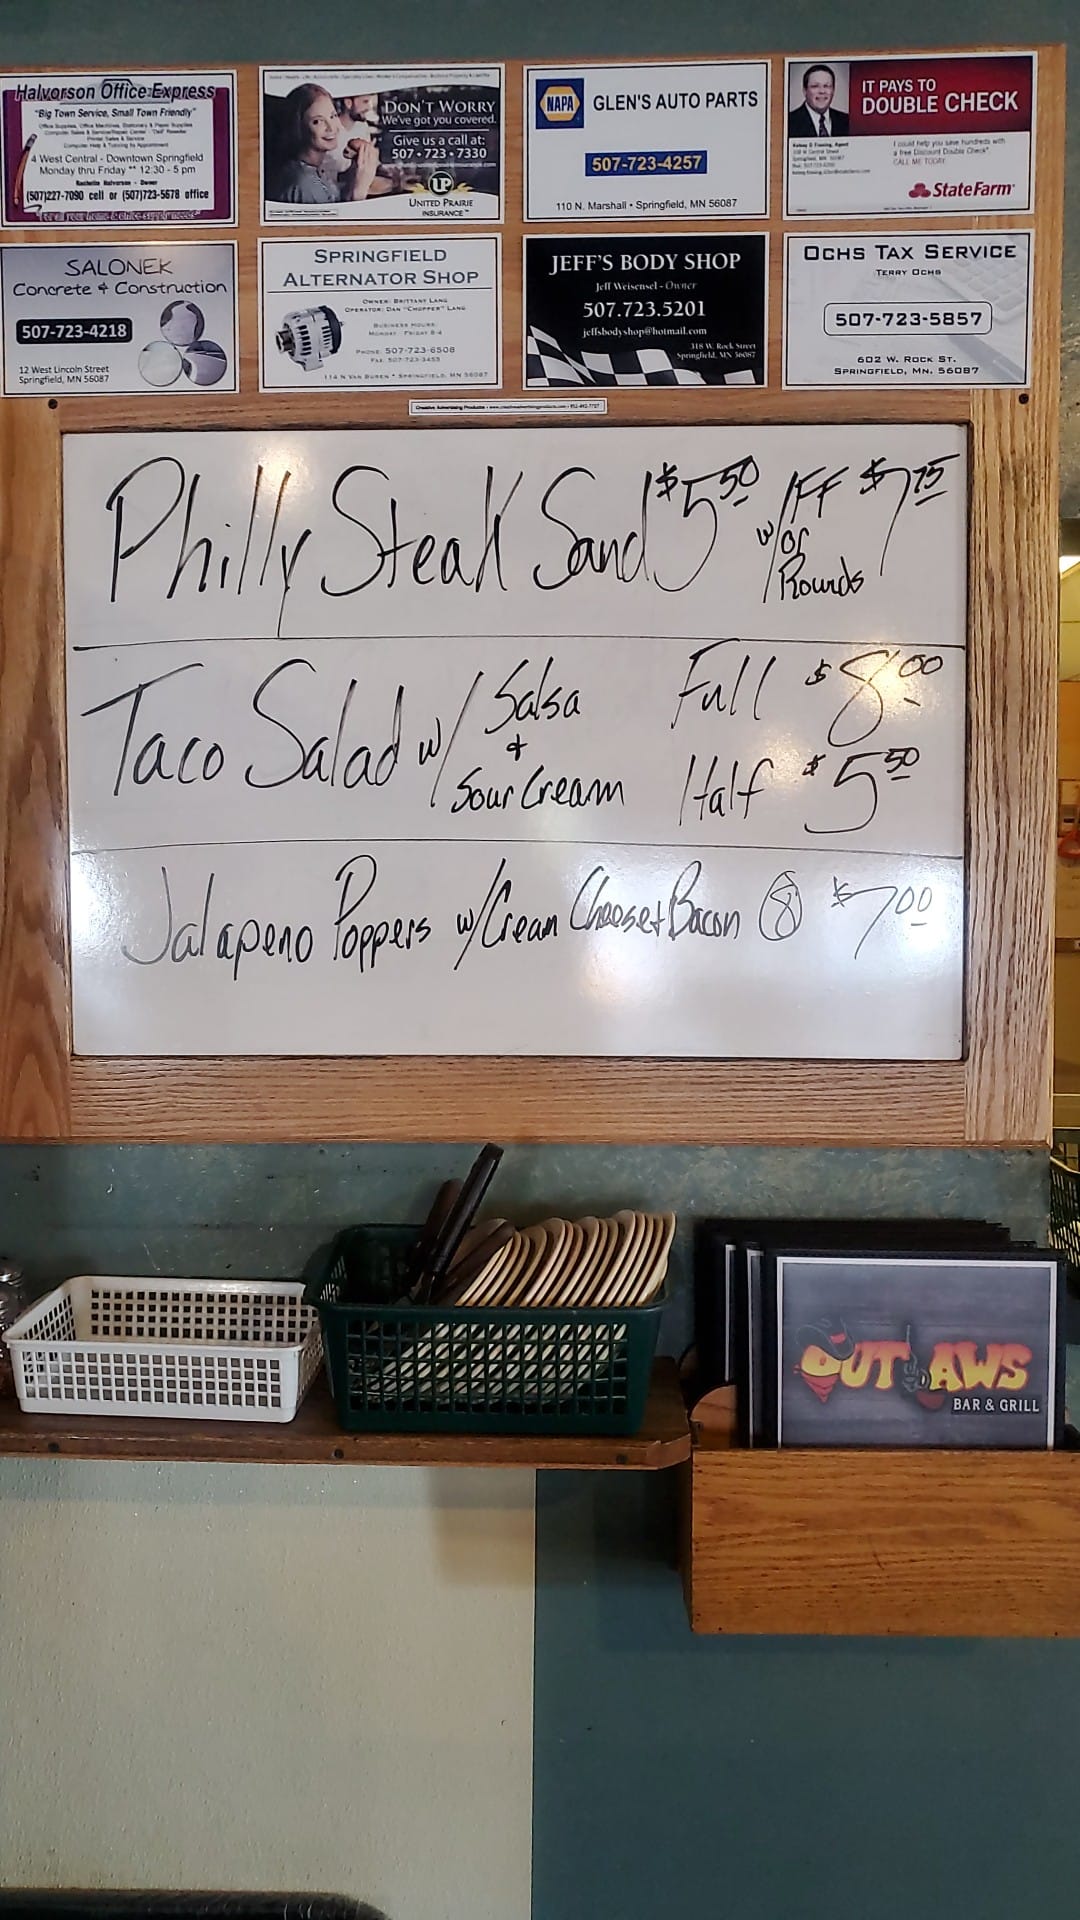 Halvorson Office Express
"Big Town Service, Small Town Friendly"
Office Supplies, Office Machines, Stationery & Paper Supplies
4 West Central - Downtown Springfield
Monday thru Friday ** 12:30 - 5 pm
Rachelle Halvorson - Owner
(507)227-7090 cell or (507)723-5678 office
DON'T WORRY
We've got you covered.
Give us a call at:
507 • 723 • 7330
UP
UNITED PRAIRIE
INSURANCE
NAPA
GLEN'S AUTO PARTS
507-723-4257
110 N. Marshall • Springfield, MN 56087
IT PAYS TO
DOUBLE CHECK
I could help you save hundreds with
a free Discount Double Check®.
CALL ME TODAY.
StateFarm
SALONEK
Concrete & Construction
507-723-4218
12 West Lincoln Street
Springfield, MN 56087
SPRINGFIELD
ALTERNATOR SHOP
OWNER: BRITTANY LANG
OPERATOR: DAN "CHOPPER" LANG
BUSINESS HOURS:
MONDAY - FRIDAY 8-4
PHONE: 507-723-6508
FAX: 507-723-3455
114 N VAN BUREN • SPRINGFIELD, MN 56087
JEFF'S BODY SHOP
Jeff Weisensel - Owner
507.723.5201
jeffsbodyshop@hotmail.com
318 W. Rock Street
Springfield, MN 56087
OCHS TAX SERVICE
TERRY OCHS
507-723-5857
602 W. ROCK ST.
SPRINGFIELD, MN. 56087
Philly Steak Sand $5.50 w/ FF or Rounds $7.75
Taco Salad w/ Salsa + Sour Cream Full $8.00
Half $5.50
Jalapeno Poppers w/ Cream Cheese + Bacon 8 $7.00
OUTLAWS
BAR & GRILL